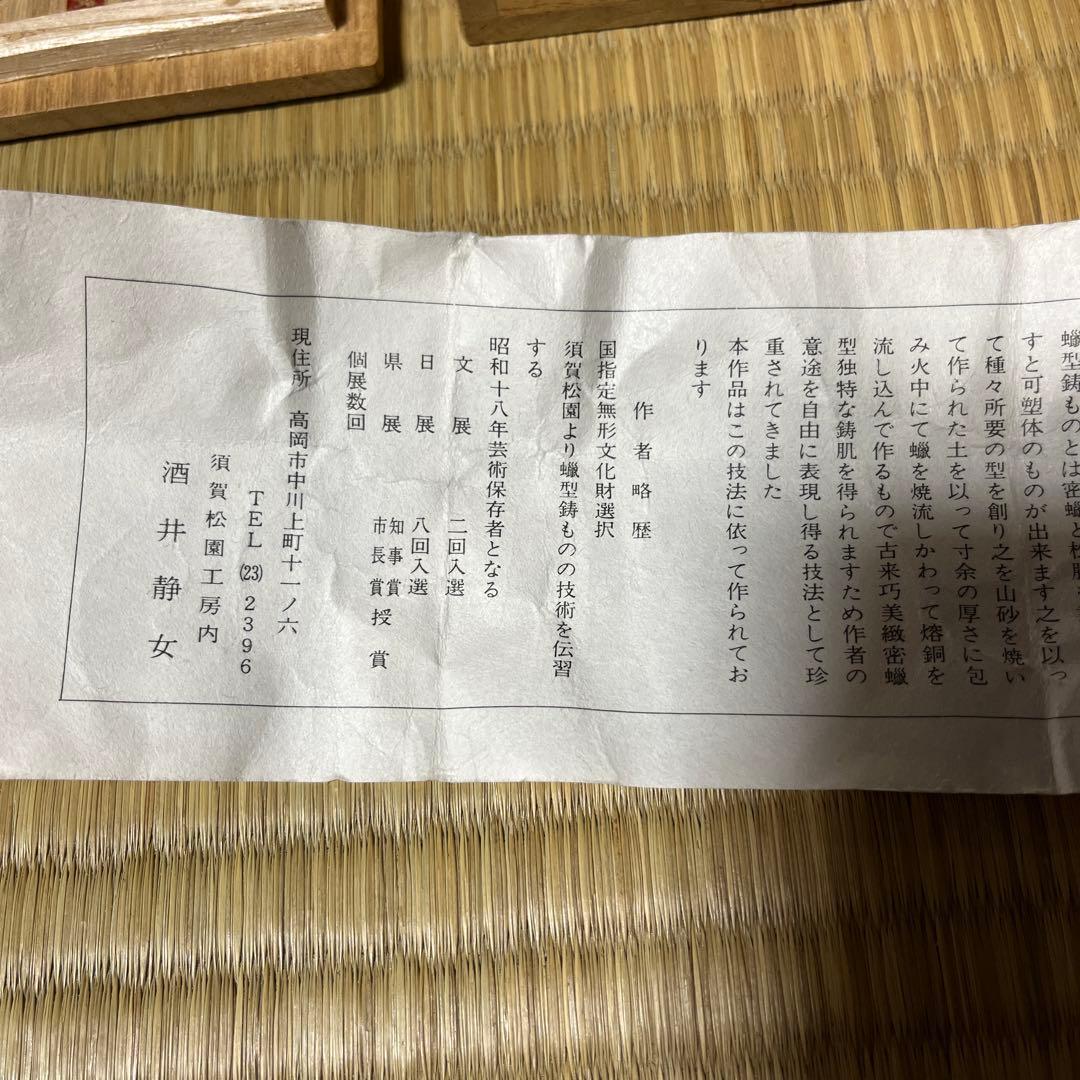 蠟型鋳ものとは密蠟と
すと可塑体のものが出来ます之を以っ
て種々所要の型を創り之を山砂を焼い
て作られた土を以って寸余の厚さに包
み火中にて蠟を焼流しかわって熔銅を
流し込んで作るもので古来巧美緻密蠟
型独特な鋳肌を得られますため作者の
意途を自由に表現し得る技法として珍
重されてきました
本作品はこの技法に依って作られてお
ります
作者略歴
国指定無形文化財選択
須賀松園より蠟型鋳ものの技術を伝習
する
昭和十八年芸術保存者となる
文展 二回入選
日展 八回入選
県展 知事賞 市長賞 授賞
個展数回
現住所 高岡市中川上町十一ノ六
TEL (23) 2396
須賀松園工房内
酒井静女